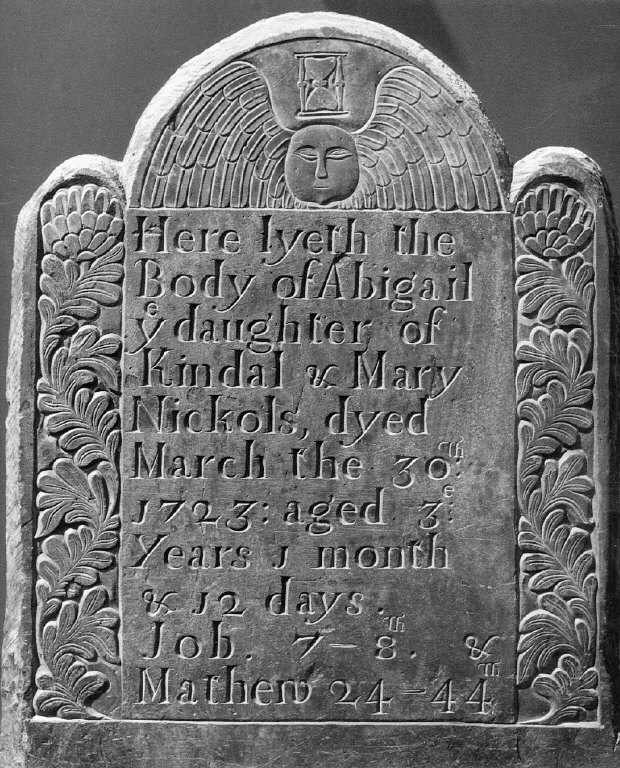 Here lyeth the
Body of Abigail
yͤ daughter of
Kindal & Mary
Nickols, dyed
March the 30ᵗʰ:
1723: aged 3ᵉ:
Years 1 month
& 12 days.
Job. 7–8ᵗʰ. &
Mathew 24–44ᵗʰ